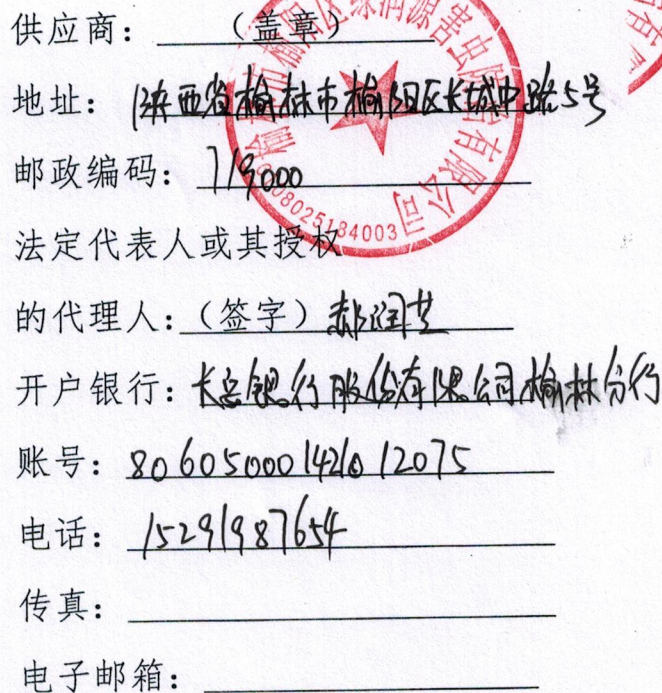 供应商：（盖章）
地址：陕西省榆林市榆阳区长城中路5号
邮政编码：719000
法定代表人或其授权
的代理人：（签字）郝润芝
开户银行：长安银行股份有限公司榆林分行
账号：806050001421012075
电话：15291987654
传真：
电子邮箱：
榆阳区绿润源害虫防治有限公司
08025184003